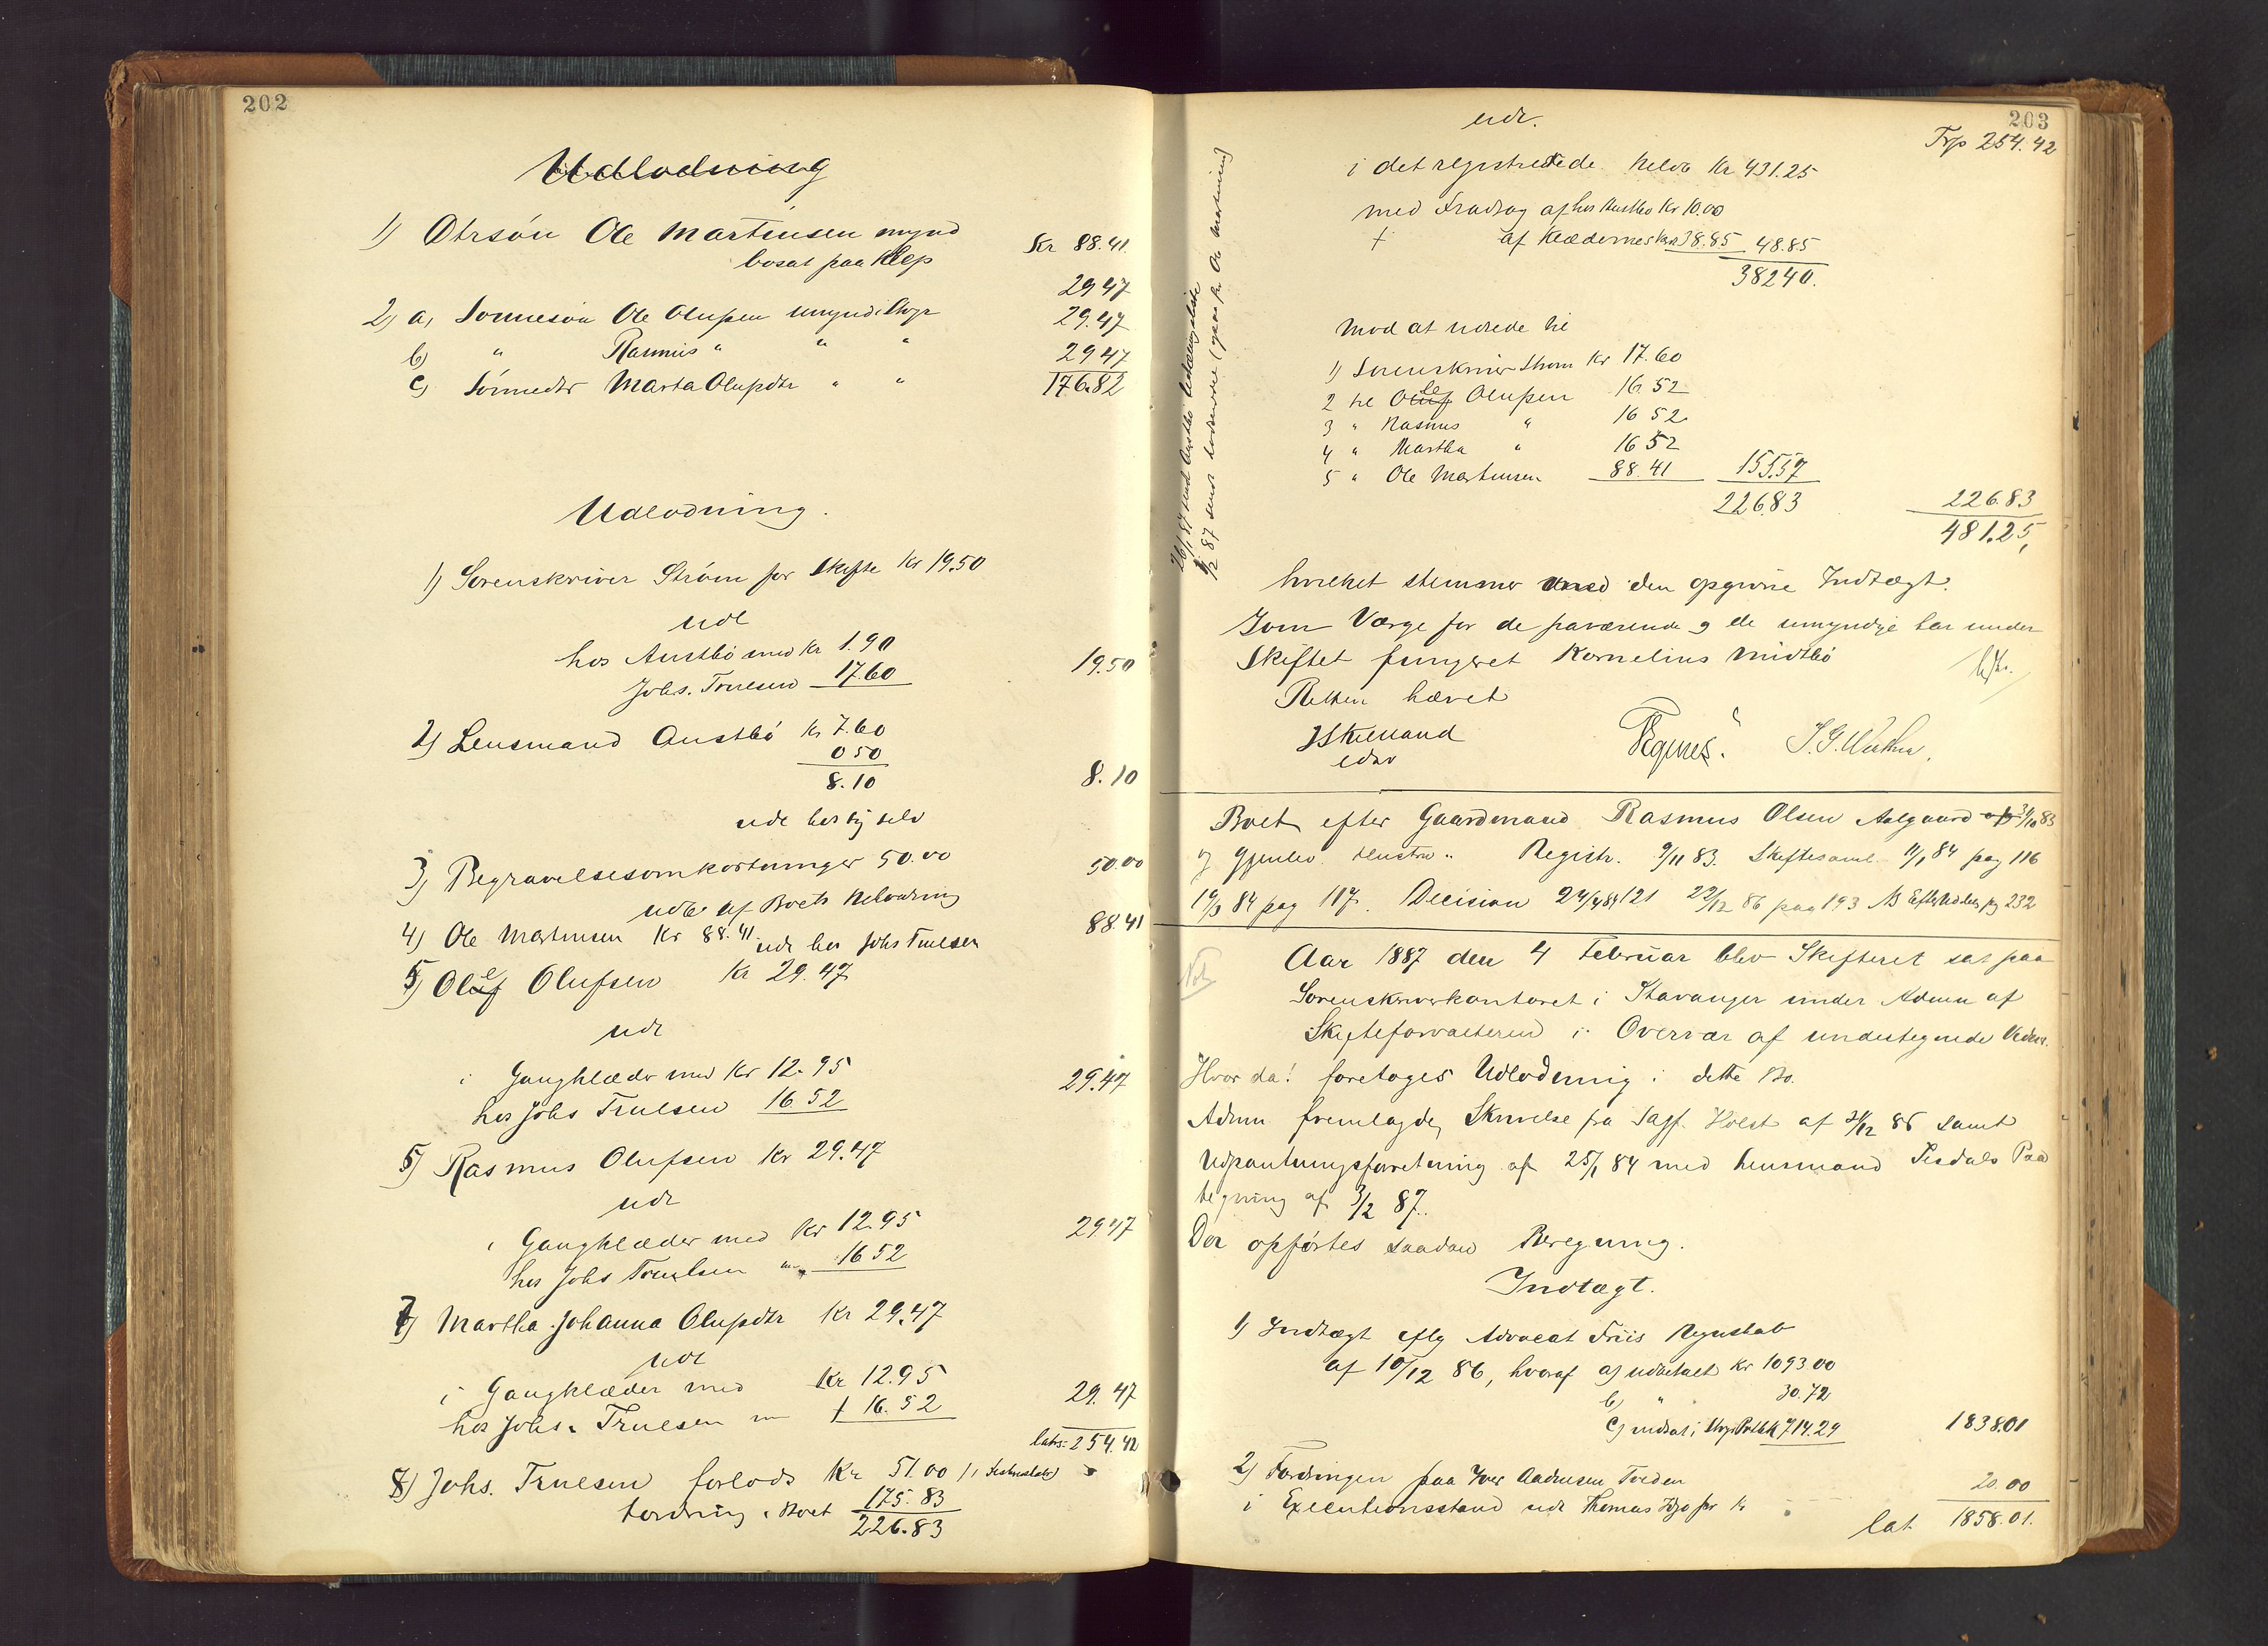 202
Udlodning
1) Ohrsön Ole Martinsen mynd
bosat paa Klep Kr 88.41
29 47
2) a, Sönnesön Ole Olufsen umynd: Ovgr 29.47
b) " Rasmus " " " 29 47
c) Sönnedtr Marta Olufsdtr " " 176.82
Udlodning.
1) Sorenskriver Ström for Skifte Kr 19.50
udl
hos Austbö med Kr 1.90
Johs. Truelsen 17.60 19.50
2) Lensmand Austbö Kr 7.60
0 50
8.10 8.10
udl hos sig selv
3) Begravelsesomkostninger 50.00 50.00
udl af Boets Beholdning
4) Ole Martinsen Kr 88.41 udl hos Johs Truelsen 88.41
5) Ole Olufsen Kr 29.47
udl
i Gangklæder med Kr 12.95
hos Johs Truelsen 16 52 29.47
6) Rasmus Olufsen Kr 29.47
udl
i Gangklæder med Kr 12.95 29 47
hos Johs Truelsen " 16 52
7) Martha Johanna Olufsdtr Kr 29.47
udl
i Gangklæder med Kr 12.95
hos Johs. Truelsen " + 16.52 29.47
lats: 254.42
8) Johs. Truelsen forlods Kr 51.00
fordring i Boet 175.83
226.83
203
udl.
Trp 254.42
i det registrerede Beløb Kr 431.25
med Fradrag af hos Austbö Kr 10.00
+ af Klæderne Kr 38.85 48.85
38240.
mod at udrede til
1) Sorenskriver Ström Kr 17.60
2 til Ole Olufsen 16.52
3 " Rasmus " 16 52
4 " Martha " 16 52
5 " Ole Martinsen 88.41 155.57
226.83 226.83
481.25,
hvilket stemmer med den opgivne Indtægt.
Som Værge for de fraværende og de umyndige har under
Skiftet fungeret Kornelius Midtbö
Retten hævet
Boet efter Gaardmand Rasmus Olsen Aalgaard 31/10 83
og gjenlev. Hustru " Registr. 9/11 83. Skiftesaml. 11/1 84 pag 116
19/3 84 pag 117. Decision 24/4 84 121 22/12 86 pag 193 NB Efter Udlodn pg 232
Aar 1887 den 4 Februar blev Skifteret sat paa
Sorenskriverkontoret i Stavanger under Admn af
Skifteforvalteren i Overvær af undertegnede Vidner.
Hvor da! foretoges Udlodning i dette Bo.
Admn fremlagde, Skrivelse fra Sagf. Holst af 31/12 86 samt
Udpantningsforretning af 25/1 84 med Lensmand Sisdals Paa
tegning af 3/2 87.
Der opförtes saadan Beregning.
Indtægt.
1) Indtægt eflg Advocat Friis Regnskab
af 10/12 86, hvoraf a) udbetalt Kr 1093 00
b) " 30.72
c) indsat i Ovgr Protk 714.29 1838.01
2) Fordringen paa Iver Aadnesen Tveden
i Executionsstand udl Thomas for Kr 20.00
lat 1858.01.